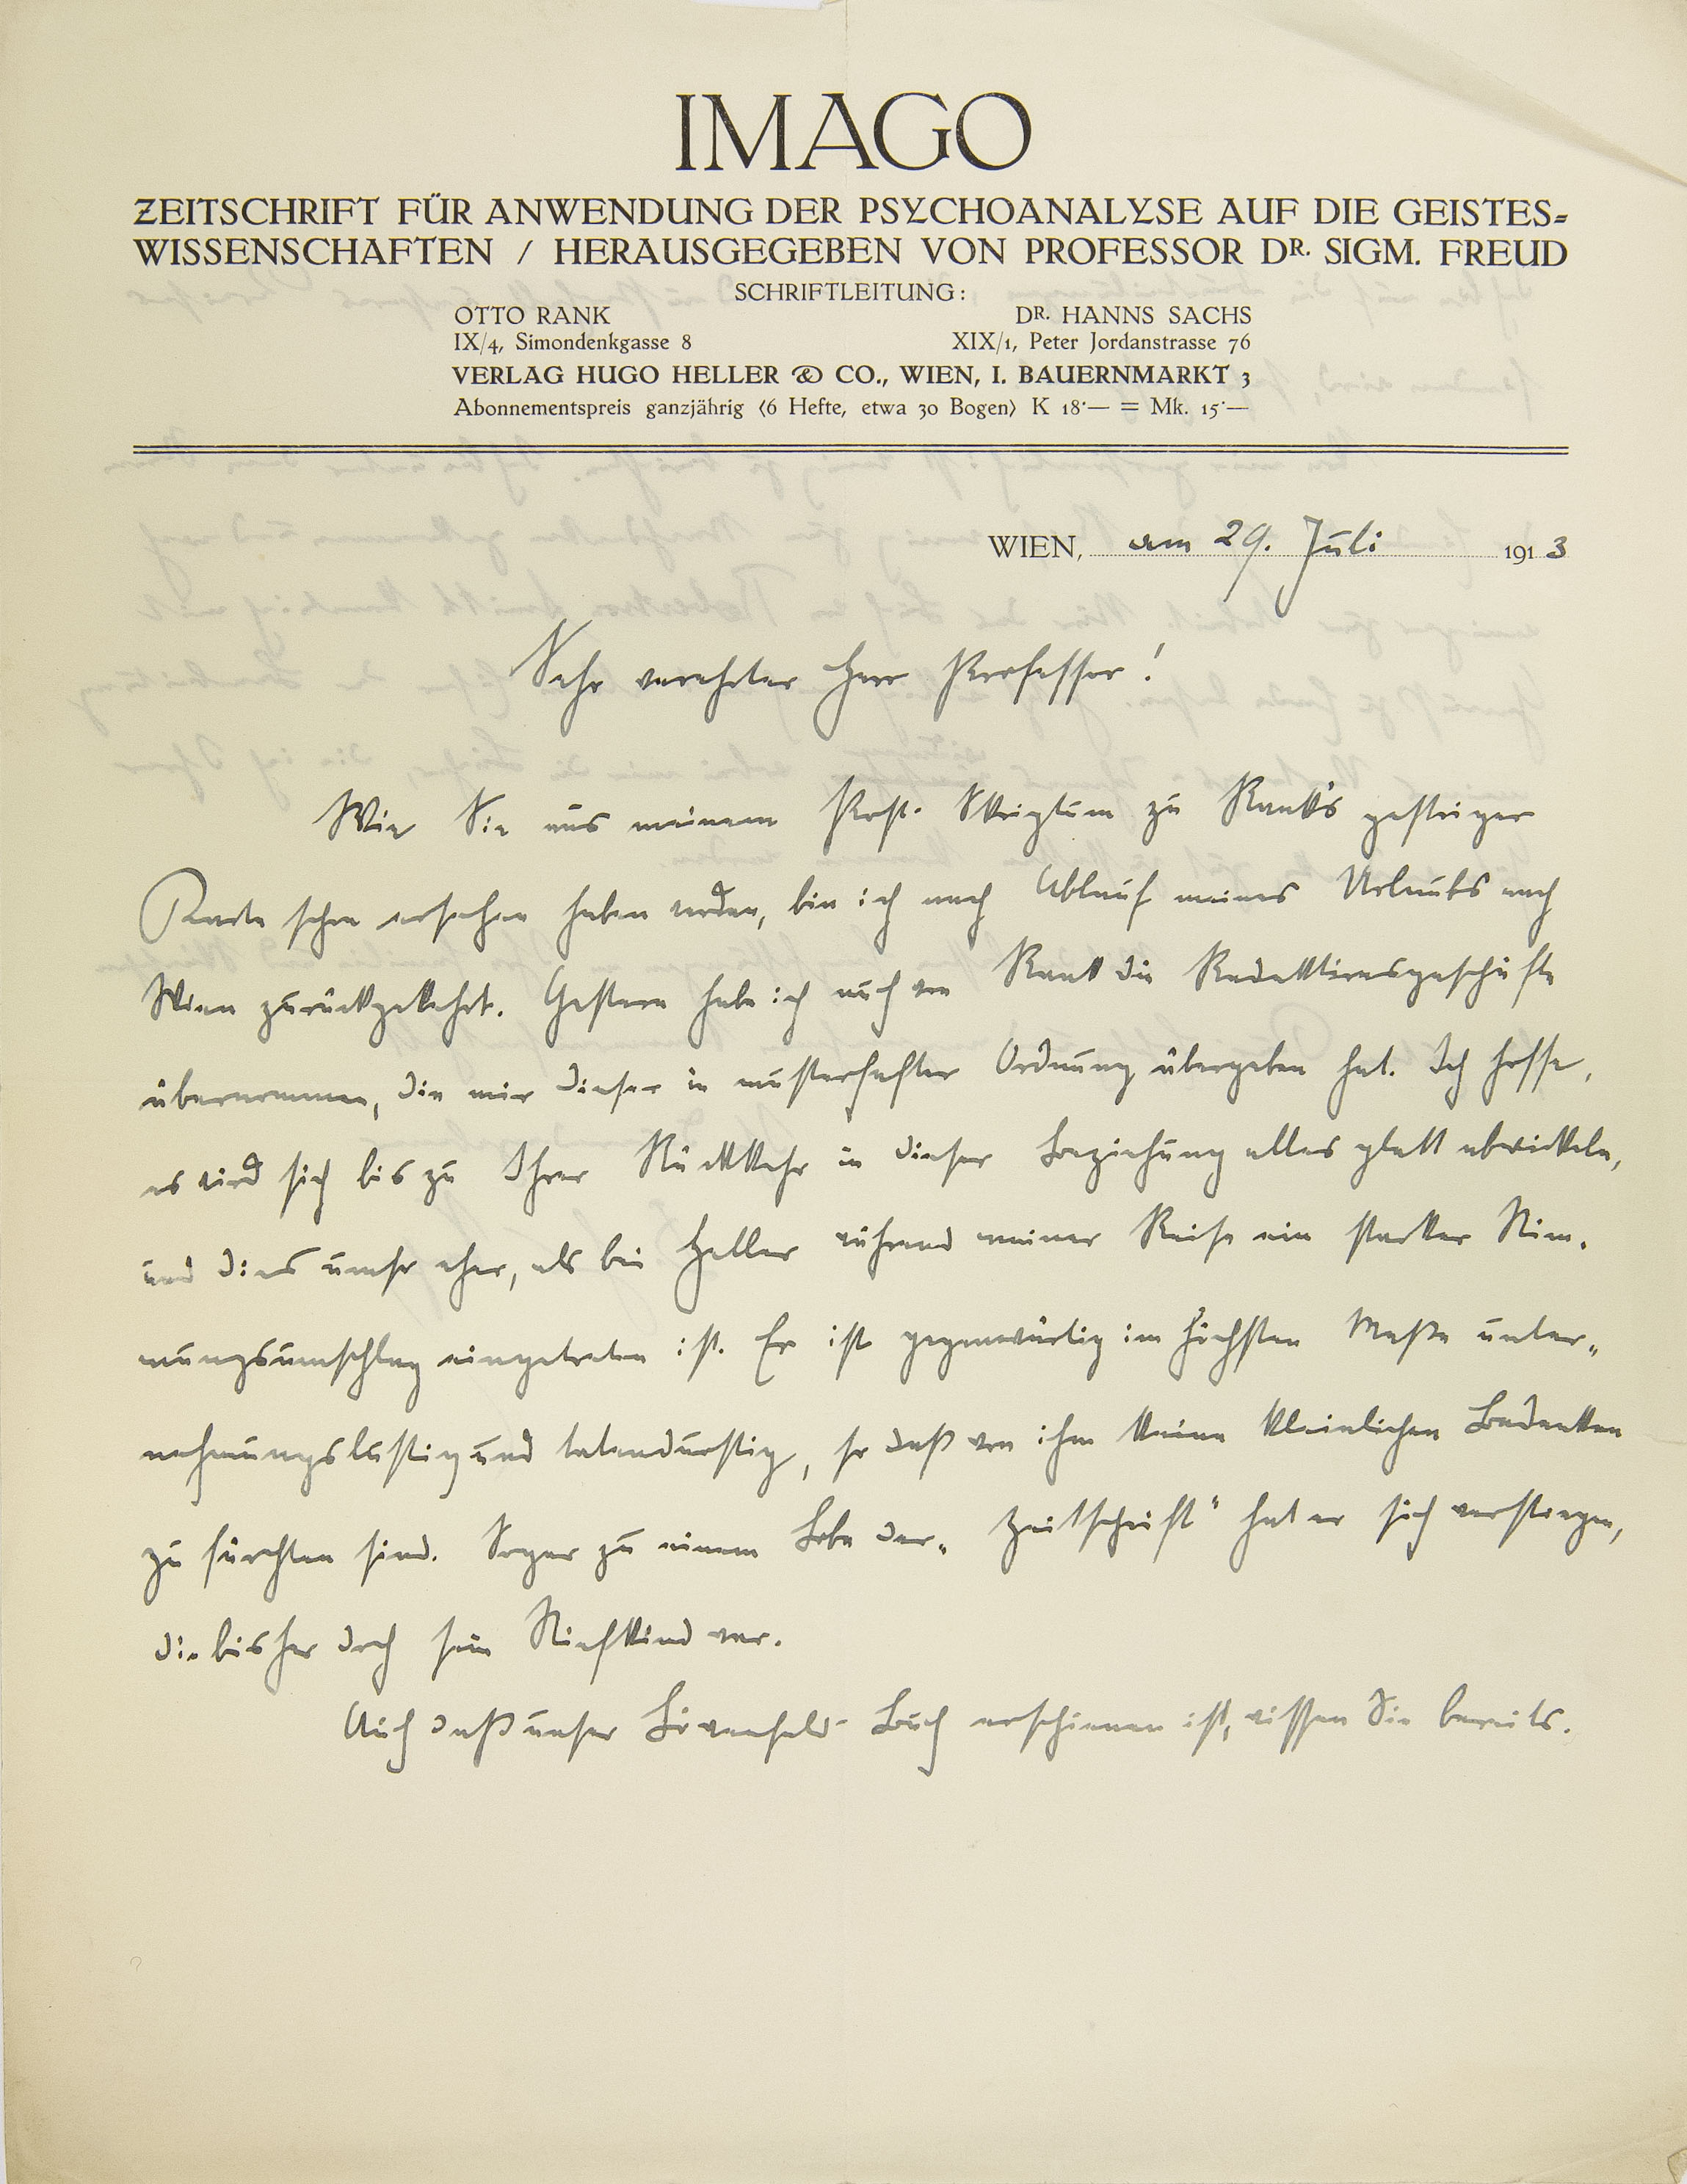 IMAGO
ZEITSCHRIFT FÜR ANWENDUNG DER PSYCHOANALYSE AUF DIE GEISTES-
WISSENSCHAFTEN / HERAUSGEGEBEN VON PROFESSOR DR. SIGM. FREUD
SCHRIFTLEITUNG:
OTTO RANK DR. HANNS SACHS
IX/4, Simondenkgasse 8 XIX/1, Peter Jordanstrasse 76
VERLAG HUGO HELLER & CO., WIEN, I. BAUERNMARKT 3
Abonnementspreis ganzjährig (6 Hefte, etwa 30 Bogen) K 18·— = Mk. 15·—
WIEN, am 29. Juli 1913
Sehr verehrter Herr Professor!
Wie Sie aus meinem Post-Skriptum zu Rank's gestriger
Karte schon ersehen haben werden, bin ich nach Ablauf meines Urlaubs nach
Wien zurückgekehrt. Gestern habe ich auch von Rank die Redaktionsgeschäfte
übernommen, die mir dieser in musterhafter Ordnung übergeben hat. Ich hoffe,
es wird sich bis zu Ihrer Rückkehr in dieser Beziehung alles glatt abwickeln,
und dies umso eher, als bei Heller während meiner Reise ein starker Stim-
mungsumschlag eingetreten ist. Er ist gegenwärtig im höchsten Maße unter-
nehmungslustig und tatendurstig, so daß von ihm keine kleinlichen Bedenken
zu fürchten sind. Sogar zu einem Lobe der „Zeitschrift" hat er sich verstiegen,
die bisher doch sein Stiefkind war.
Auch daß unser Löwenfeld-Buch erschienen ist, wissen Sie bereits.